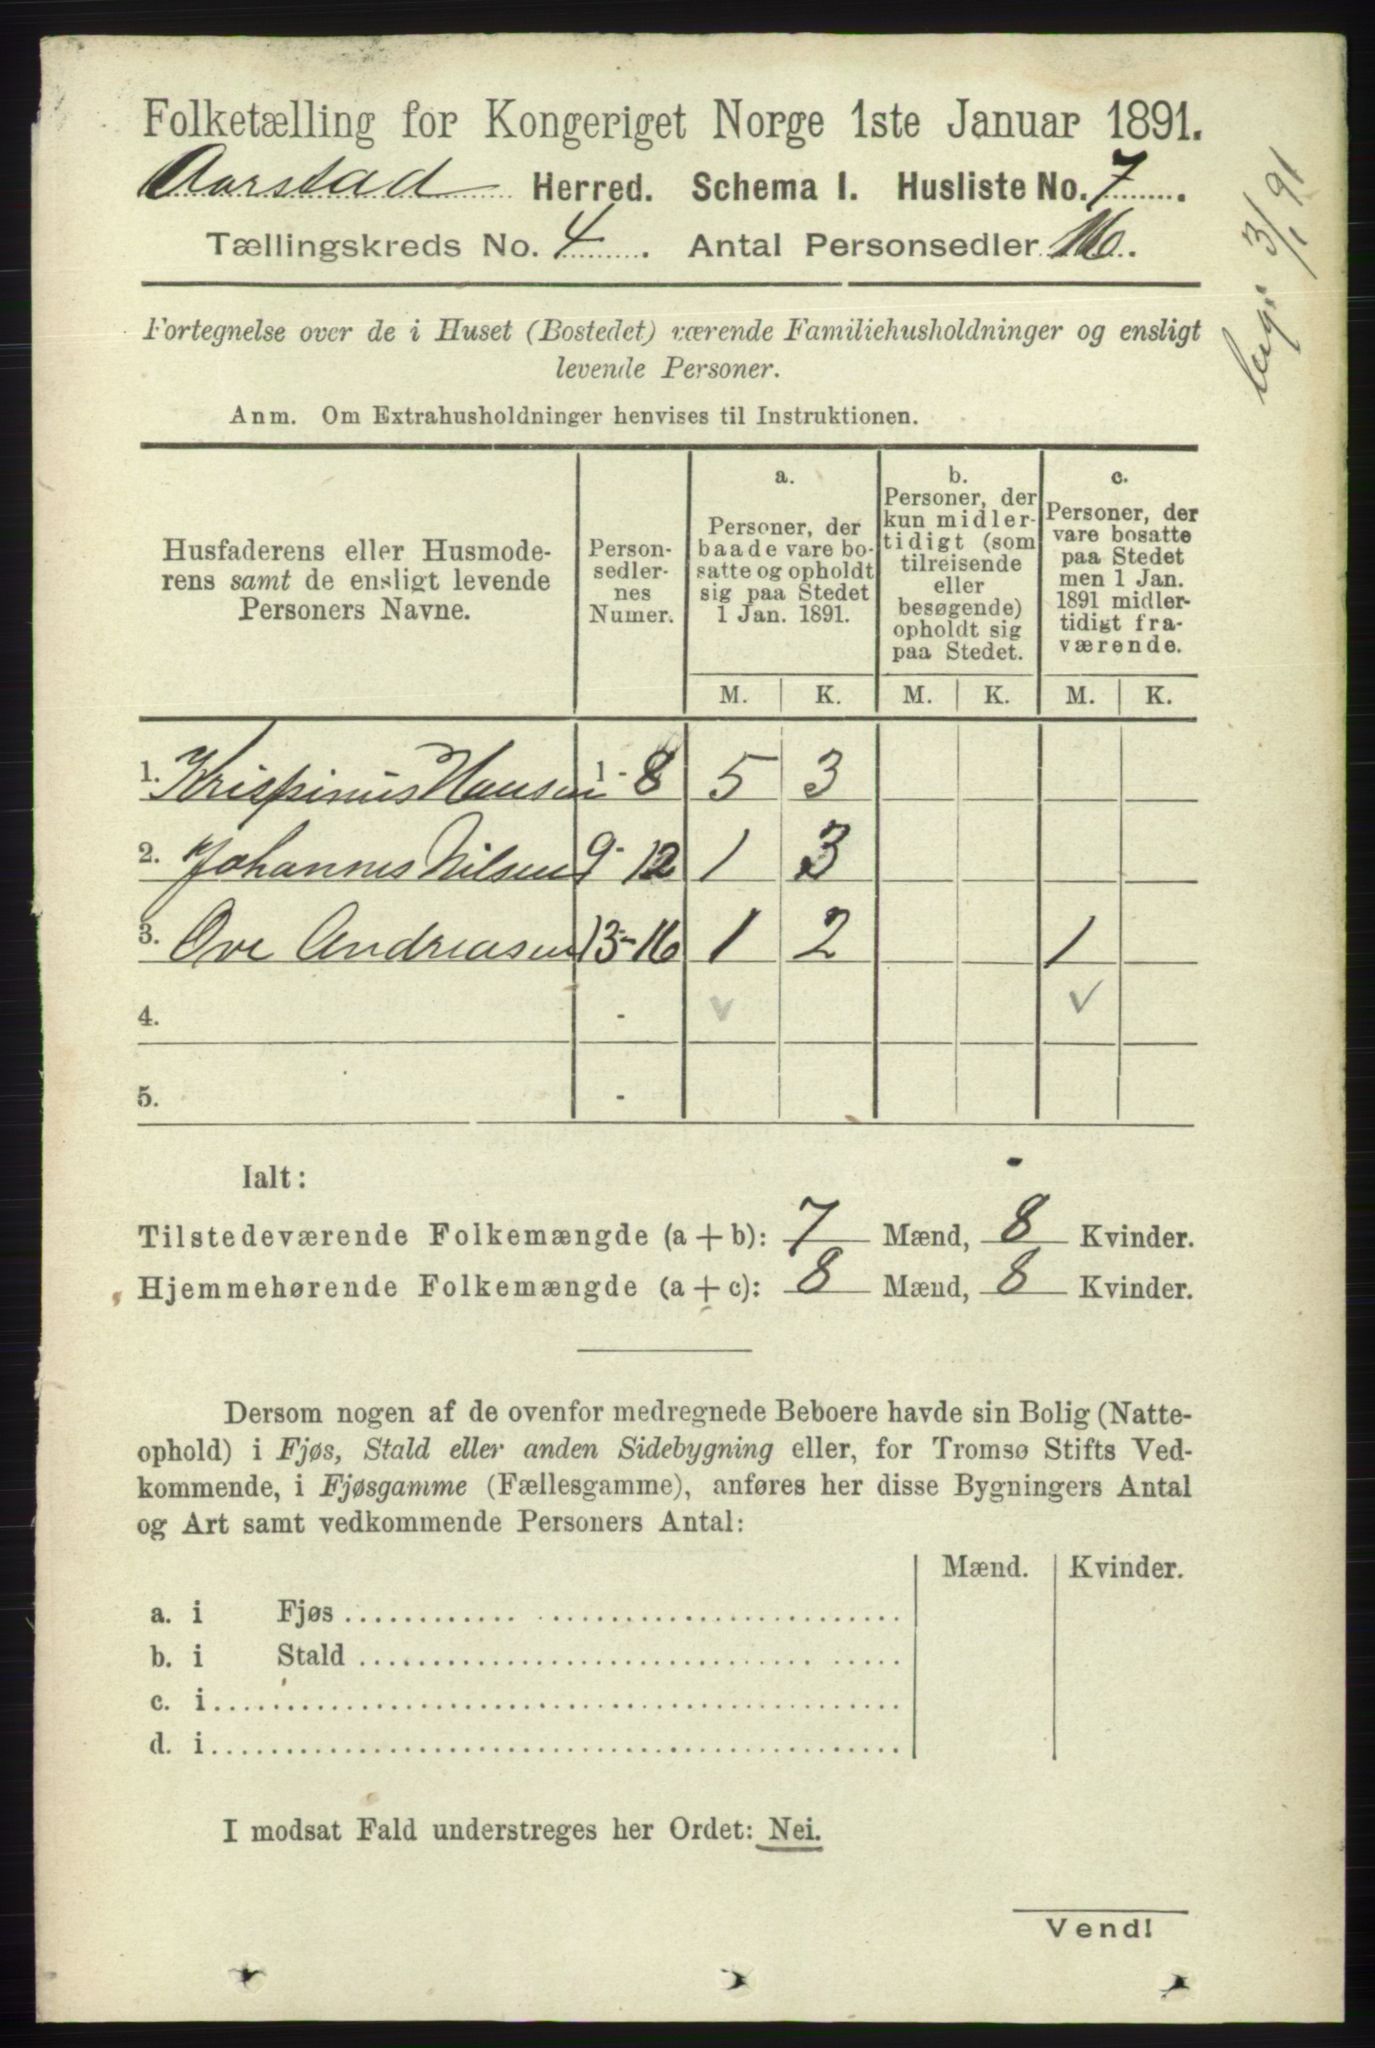 Folketælling for Kongeriget Norge 1ste Januar 1891.
Aarstad Herred. Schema I. Husliste No. 7
Tællingskreds No. 4. Antal Personsedler 16.
3/1 91
Fortegnelse over de i Huset (Bostedet) værende Familiehusholdninger og ensligt
levende Personer.
Anm. Om Extrahusholdninger henvises til Instruktionen.
Husfaderens eller Husmode-
rens samt de ensligt levende
Personers Navne.
Person-
sedler-
nes
Numer.
a.
Personer, der
baade vare bo-
satte og opholdt
sig paa Stedet
1 Jan. 1891.
b.
Personer, der
kun midler-
tidigt (som
tilreisende
eller
besøgende)
opholdt sig
paa Stedet.
c.
Personer, der
vare bosatte
paa Stedet
men 1 Jan.
1891 midler-
tidigt fra-
værende.
M. K. M. K. M. K.
1. Krispinus Hansen 1 - 8 5 3
2. Johannes Nilsen 9 - 12 1 3
3. Ove Andreasen 13 - 16 1 2 1
4. -
5. -
Ialt:
Tilstedeværende Folkemængde (a + b): 7 Mænd, 8 Kvinder.
Hjemmehørende Folkemængde (a + c): 8 Mænd, 8 Kvinder.
Dersom nogen af de ovenfor medregnede Beboere havde sin Bolig (Natte-
ophold) i Fjøs, Stald eller anden Sidebygning eller, for Tromsø Stifts Ved-
kommende, i Fjøsgamme (Fællesgamme), anføres her disse Bygningers Antal
og Art samt vedkommende Personers Antal:
Mænd. Kvinder.
a. i Fjøs
b. i Stald
c. i
d. i
I modsat Fald understreges her Ordet: Nei.
Vend!